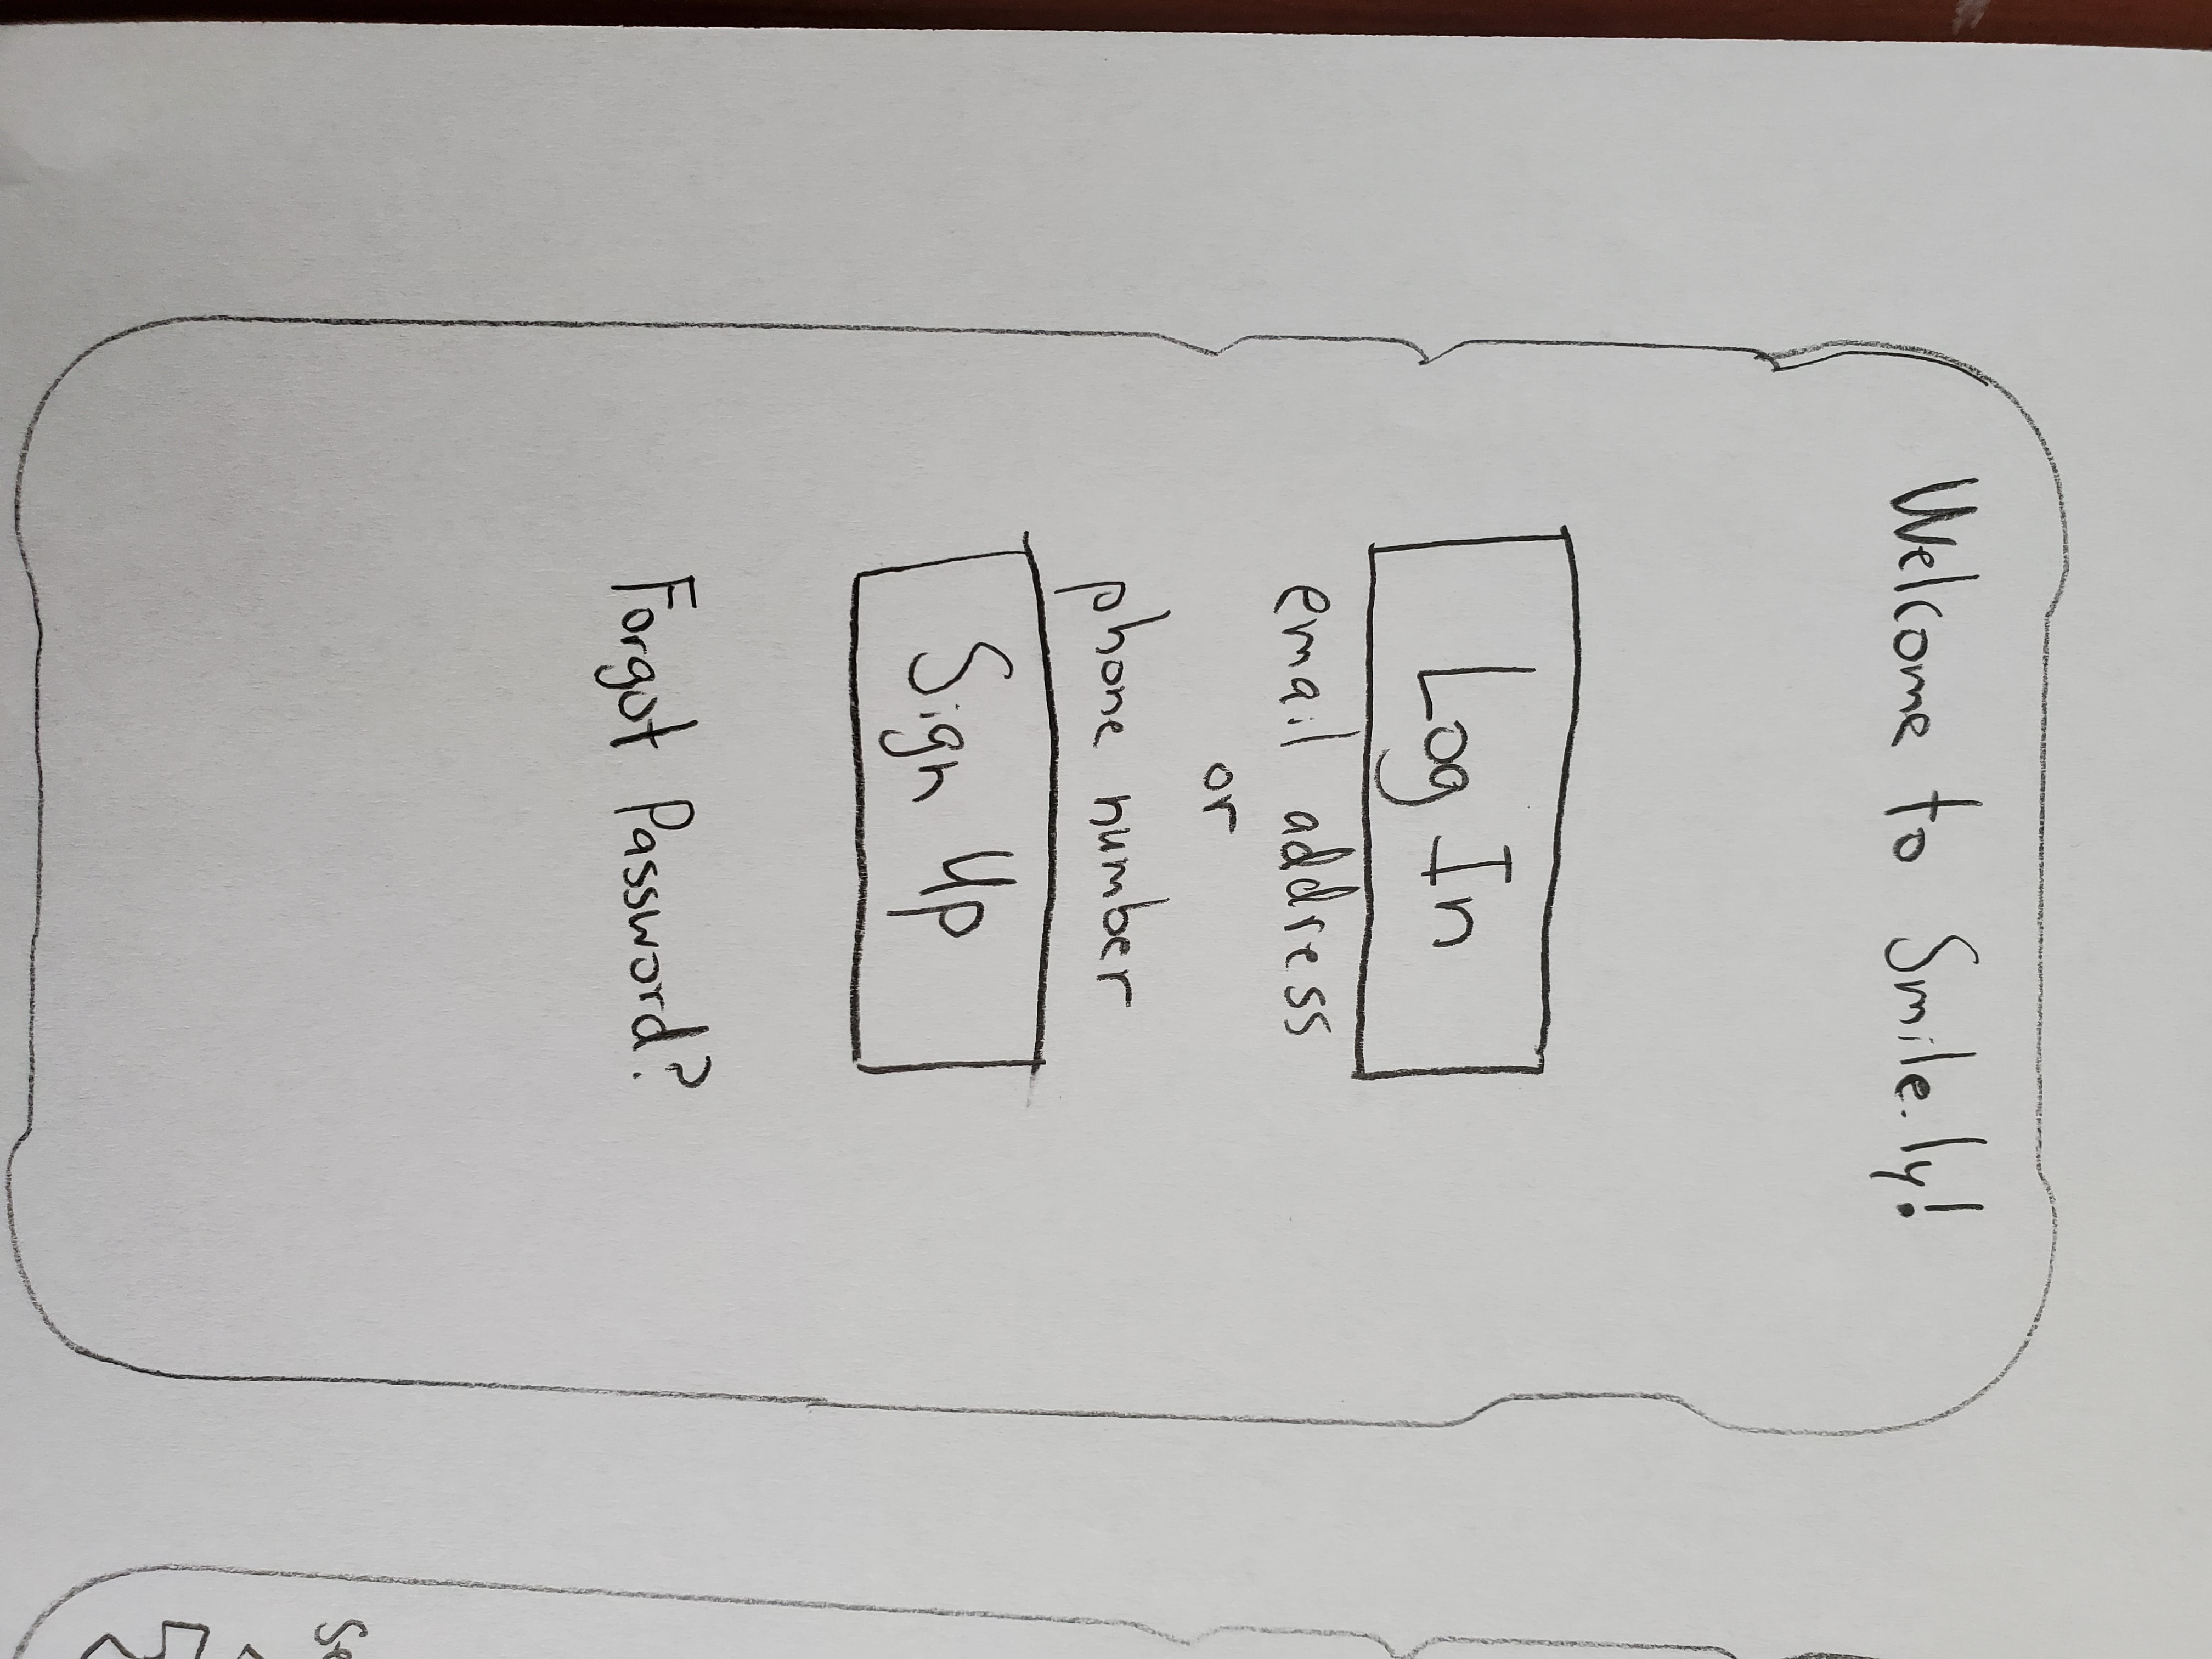 Welcome to Smile.ly!
Log In
email address
or
phone number
Sign Up
Forgot Password?